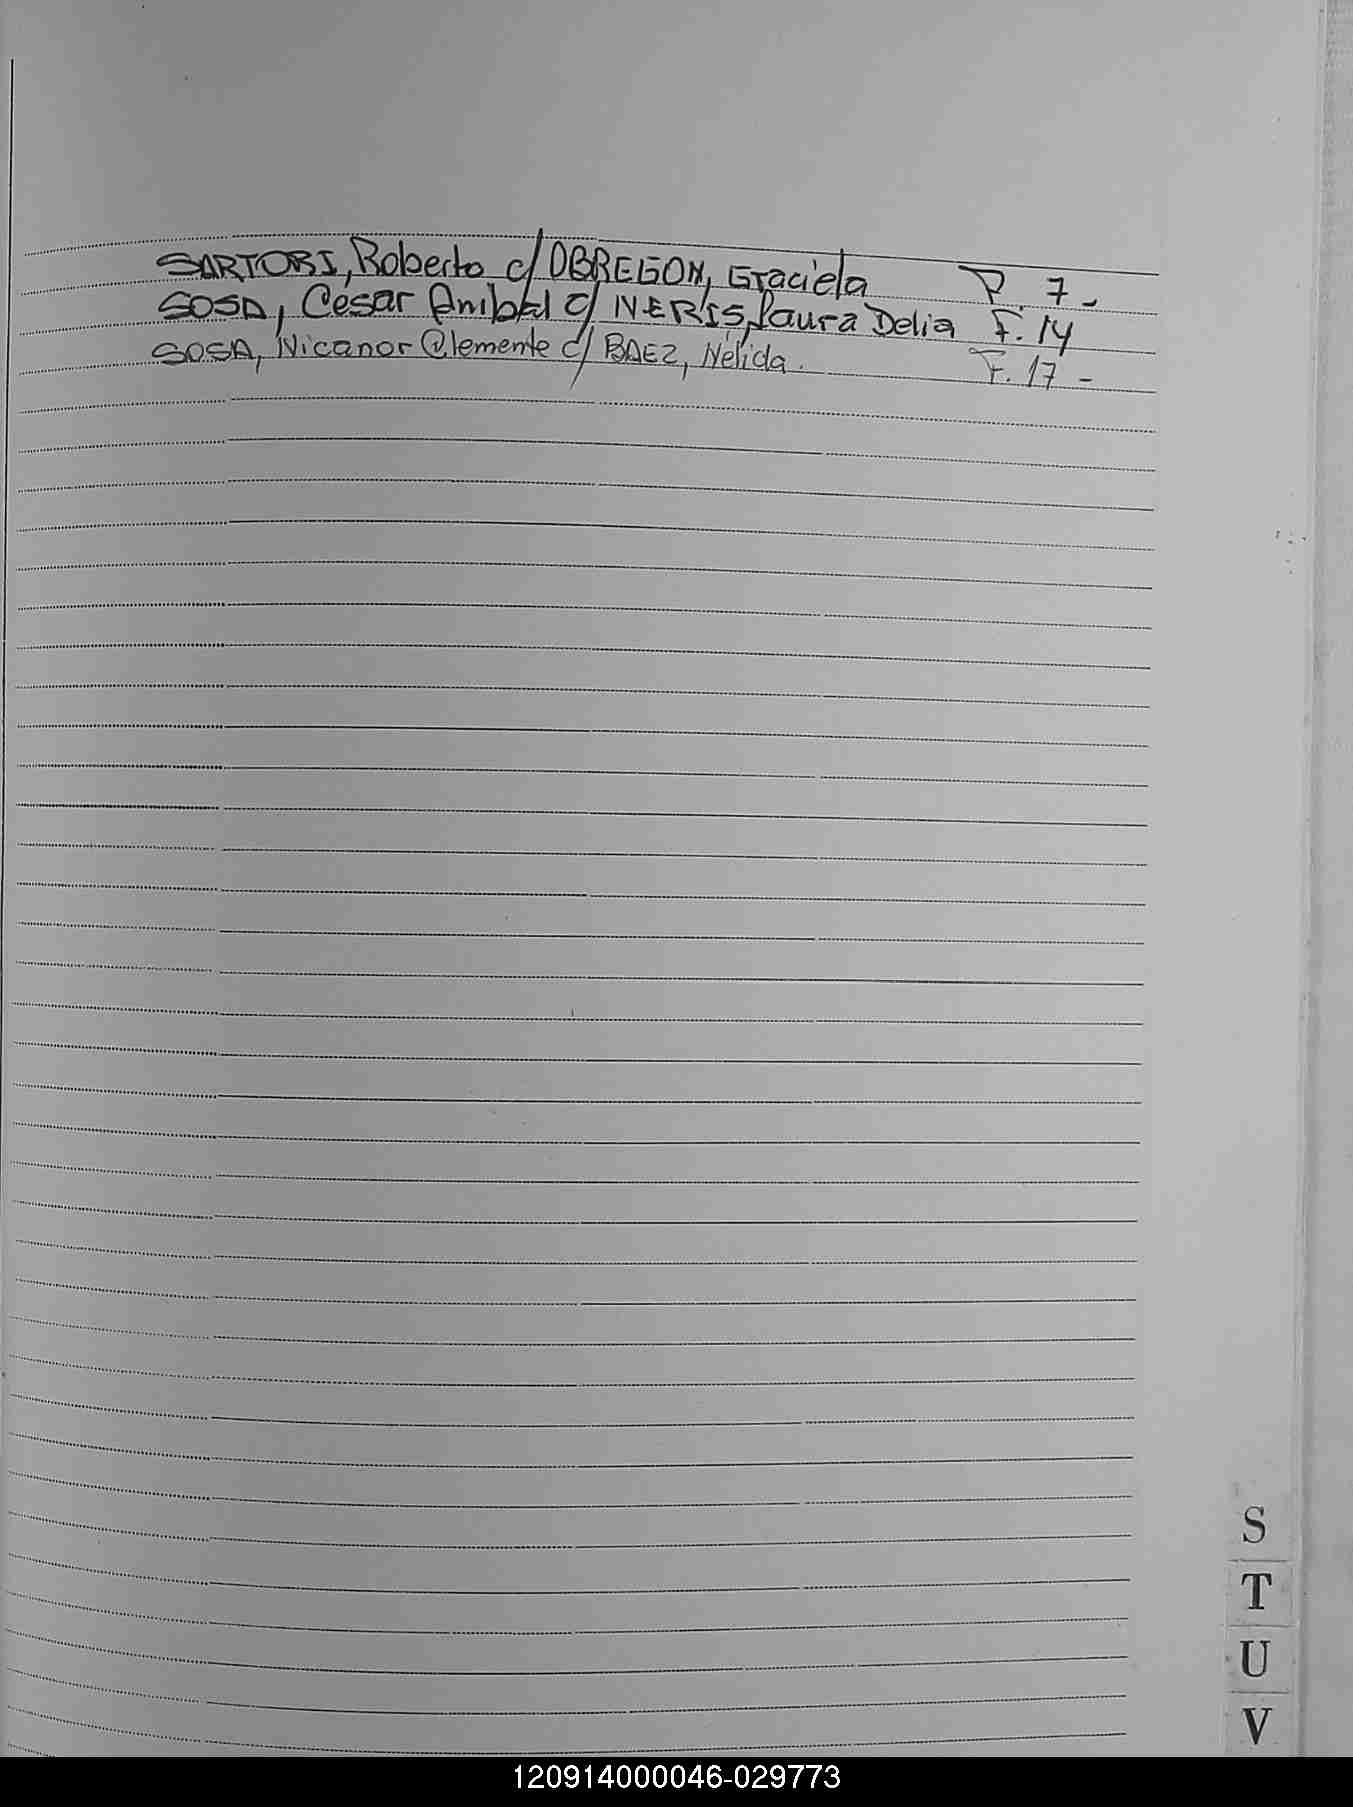 SARTORI, Roberto c/ OBREGON, Graciela F. 7-
SOSA, César Anibal c/ NERIS, Laura Delia F. 14
SOSA, Nicanor Clemente c/ BAEZ, Nélida. F. 17-
S
T
U
V
120914000046-029773